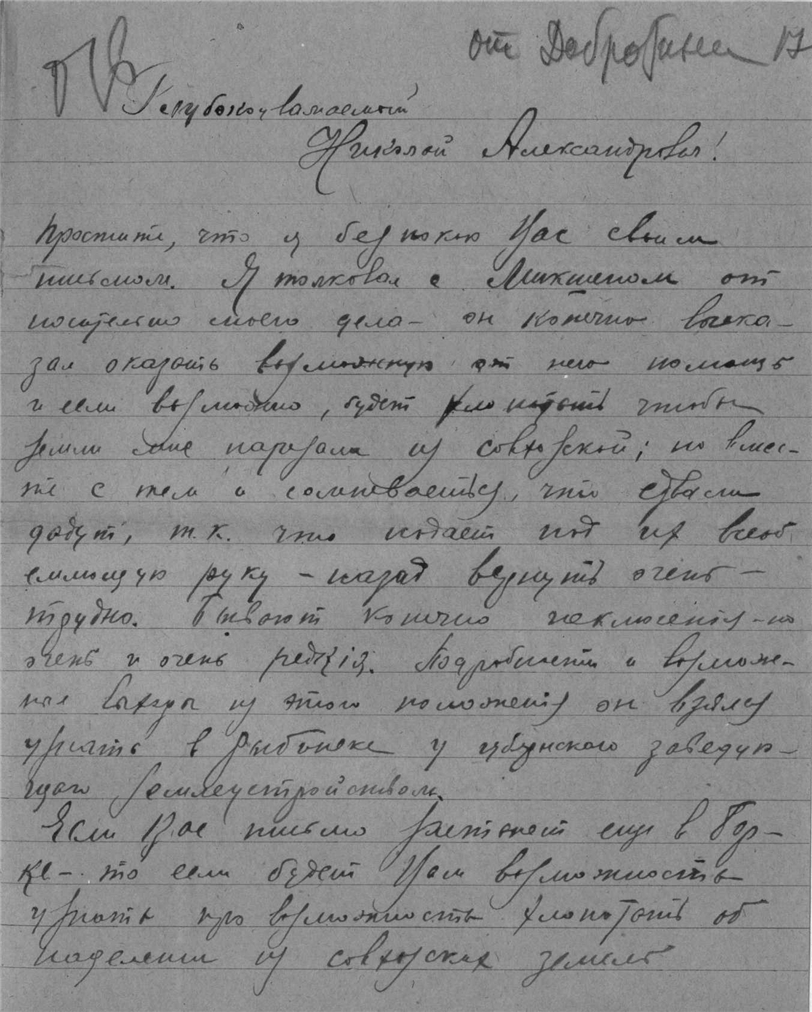 от Добробина
Глубокоуважаемый
Николай Александрович!
Простите, что я безпокою Вас своим
письмом. Я толковал с Микшепом от
носительно моего дела – он конечно выска-
зал оказать возможную от него помощь
и если возможно, будет хлопотать чтобы
земли мне нарезали из совхозской; но вмес-
те с тем и сомневается, что едвали
дадут, т.к. что попадает под их всеоб
емлющую руку – назад вернуть очень –
трудно. Бывают конечно исключения – но
очень и очень редкія. Подробности и возмож-
ные выходы из этого положенія он взялся
узнать в Рыбинске у губернского заведую-
щаго землеустройством.
Если Вас письмо застанет еще в Бор-
ке – то если будет Вам возможность
узнать про возможность хлопотать об
наделении из совхозских земель